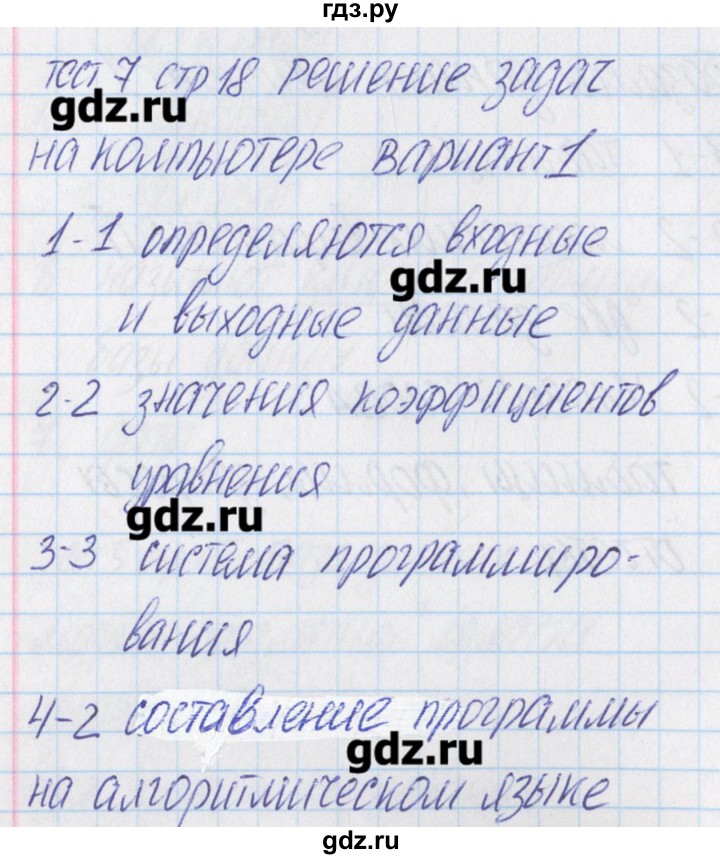 гдз.ру
тест 7 стр 18 решение задач
gdz.ru
на компьютере вариант 1
1-1 определяются входные
gdz.ru
и выходные данные
2-2 значения коэффициентов
уравнения
gdz.ru
3-3 система программиро-
вания
4-2 составление программы
gdz.ru
на алгоритмическом языке
gdz.ru